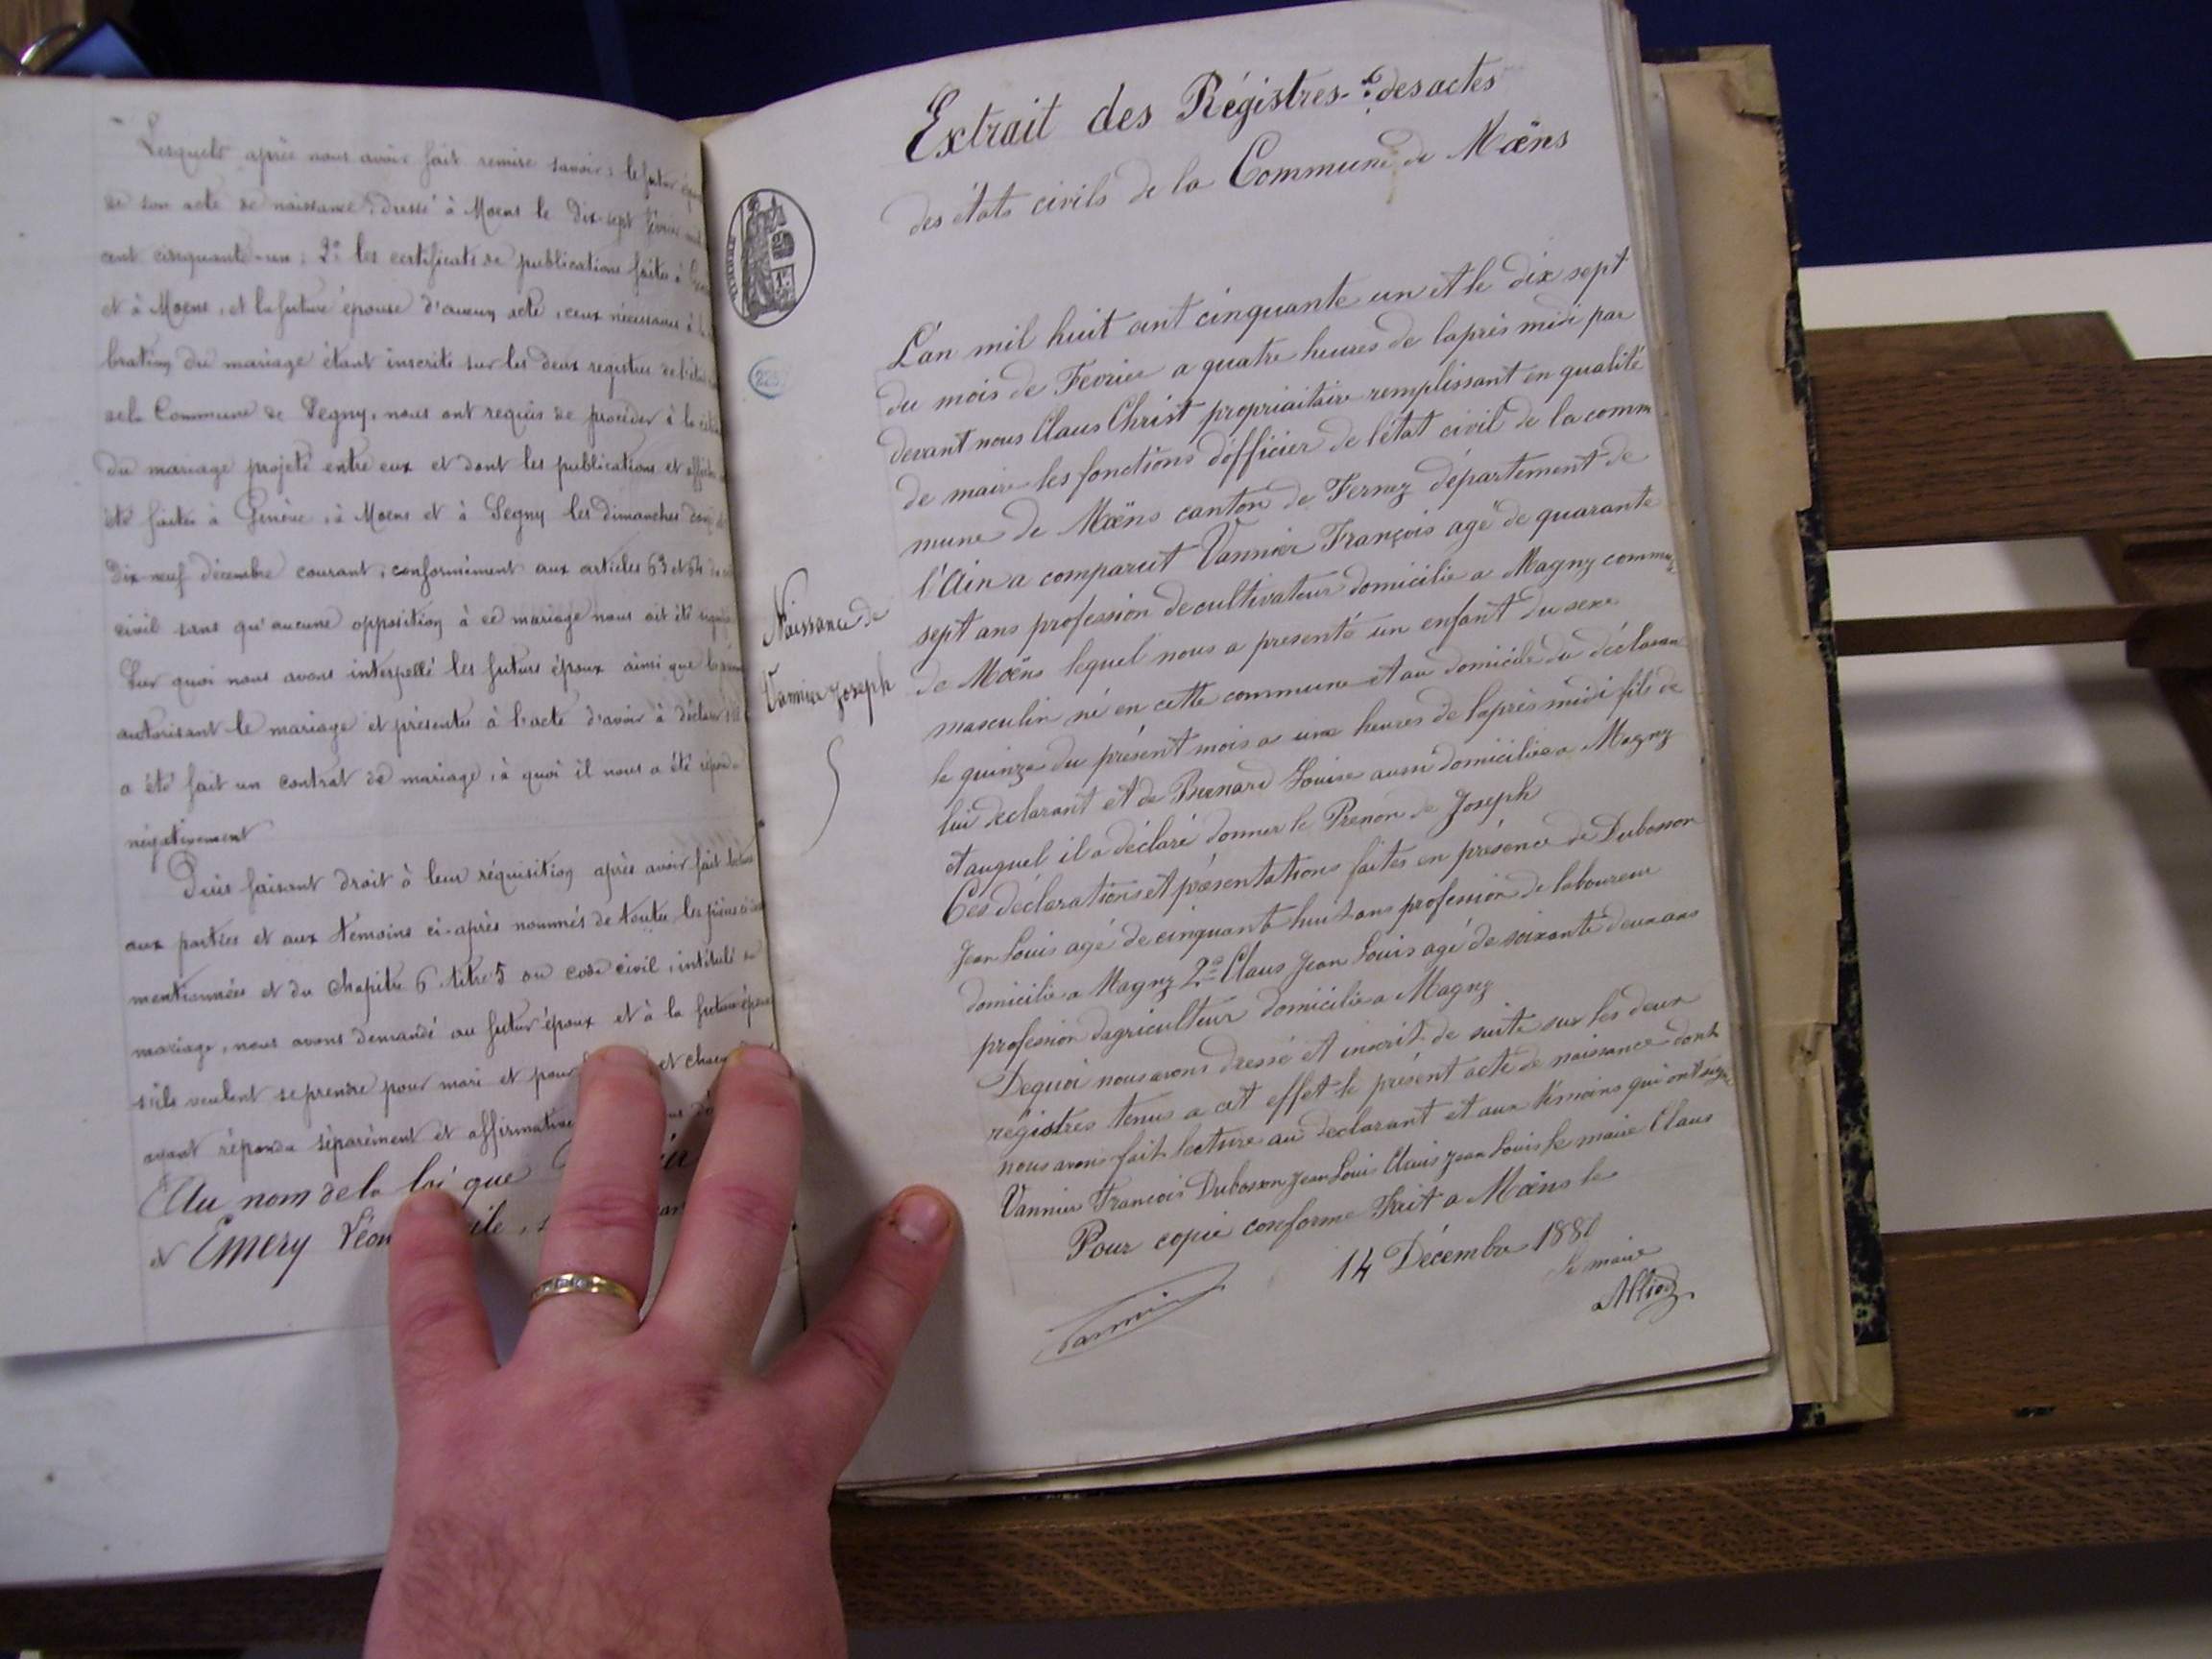 Lesquels après nous avoir fait remise savoir : le futur
de son acte de naissance, dressé à Moens le dix-sept février mil
cent cinquante-un ; 2° les certificats de publications faites à
et à Moens, et la future épouse d'aucun acte, ceux nécessaires à la
bration du mariage étant inscrits sur les deux registres de l'état
de la Commune de Segny, nous ont requis de procéder à la célé
du mariage projeté entre eux et dont les publications et affiches
été faites à Genève, à Moens et à Segny les dimanches douze
dix-neuf décembre courant, conformément aux articles 63 et 64
civil sans qu'aucune opposition à ce mariage nous ait été signifié
Sur quoi nous avons interpellé les futurs époux ainsi que
autorisant le mariage et présentes à l'acte d'avoir à déclarer s'il
a été fait un contrat de mariage, à quoi il nous a été répondu
négativement
Puis faisant droit à leur réquisition après avoir fait lecture
aux parties et aux témoins ci-après nommés de toutes les pièces
mentionnées et du chapitre 6 titre 5 du code civil, intitulé
mariage, nous avons demandé au futur époux et à la future épouse
s'ils veulent se prendre pour mari et pour et chacun
ayant répondu séparément et affirmative
Au nom de la loi que
et Emery Léon
Extrait des Régistres des actes
des états civils de la Commune de Moëns
TIMBRE
225
Naissance de
Vannier Joseph
L'an mil huit cent cinquante un et le dix sept
du mois de Fevrier a quatre heures de laprès midi par
devant nous Claus Christ propriaitaire remplissant en qualité
de maire les fonctions d'officier de l'état civil de la comm
mune de Moëns canton de Ferney département de
l'Ain a comparut Vannier François agé de quarante
sept ans profession de cultivateur domicilié a Magny commu
de Moëns lequel nous a presenté un enfant du sexe
masculin né en cette commune et au domicile du déclaran
le quinze du présent mois a une heures de laprès midi fils de
lui declarant et de Louise aussi domiciliée a Magny
et auquel il a déclaré donner le Prenom de Joseph
Ces déclarations et présentations faites en présence de Dubosson
Jean Louis agé de cinquante huit ans profession de laboureur
domicilié a Magny 2° Claus Jean Louis agé de soixante deux ans
profession dagriculteur domicilié a Magny
De quoi nous avons dressé et inscrit de suite sur les deux
régistres tenus a cet effet le présent acte de naissance dont
nous avons fait lecture au declarant et aux témoins qui ont signé
Vannier François Dubosson Jean Louis Claus Jean Louis le maire Claus
Pour copie conforme Fait a Moëns le
14 Décembre 1880
Le maire